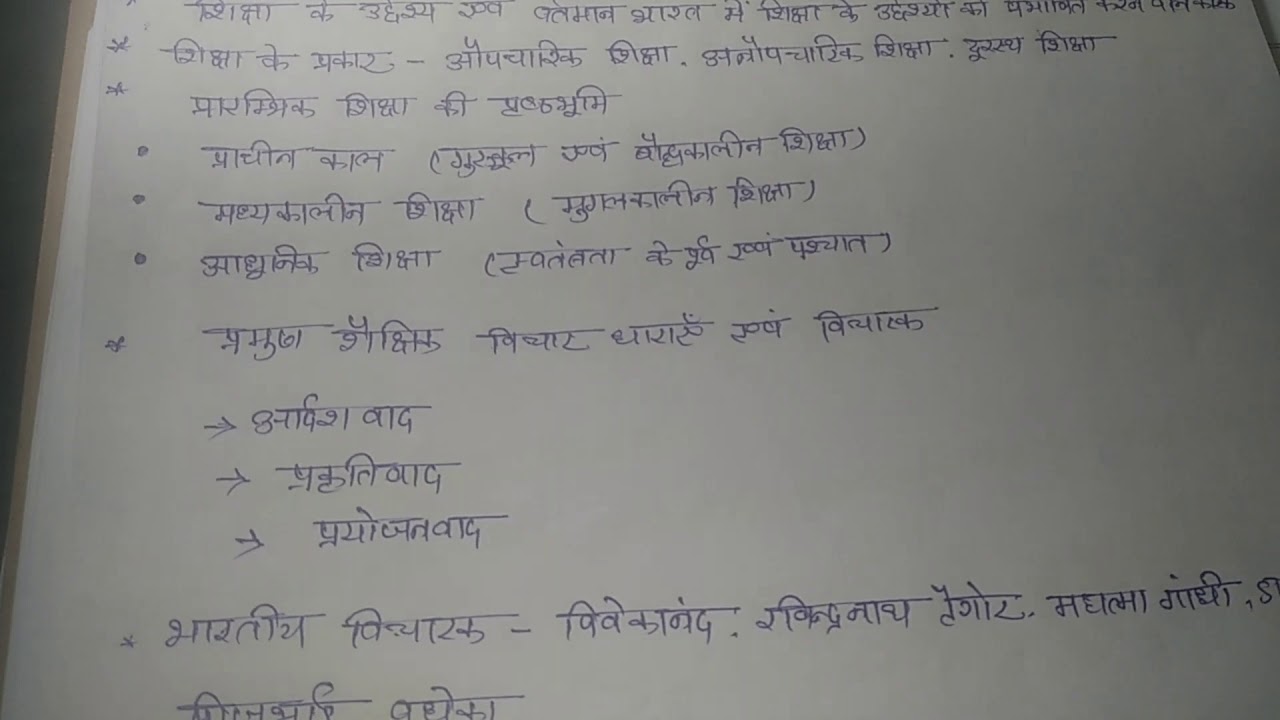 शिक्षा के उद्देश्य एवं वर्तमान भारत में शिक्षा के उद्देश्यों को प्रभावित करने वाले कारक
* शिक्षा के प्रकार - औपचारिक शिक्षा, अनौपचारिक शिक्षा, दूरस्थ शिक्षा
* प्रारम्भिक शिक्षा की पृष्ठभूमि
• प्राचीन काल (गुरुकुल एवं बौद्धकालीन शिक्षा)
• मध्यकालीन शिक्षा (मुगलकालीन शिक्षा)
• आधुनिक शिक्षा (स्वतंत्रता के पूर्व एवं पश्चात)
* प्रमुख शैक्षिक विचार धाराएँ एवं विचारक
→ आर्दश वाद
→ प्रकृतिवाद
→ प्रयोजनवाद
* भारतीय विचारक - विवेकानंद, रविन्द्रनाथ टैगोर, महात्मा गांधी,
गिजुभाई बधेका